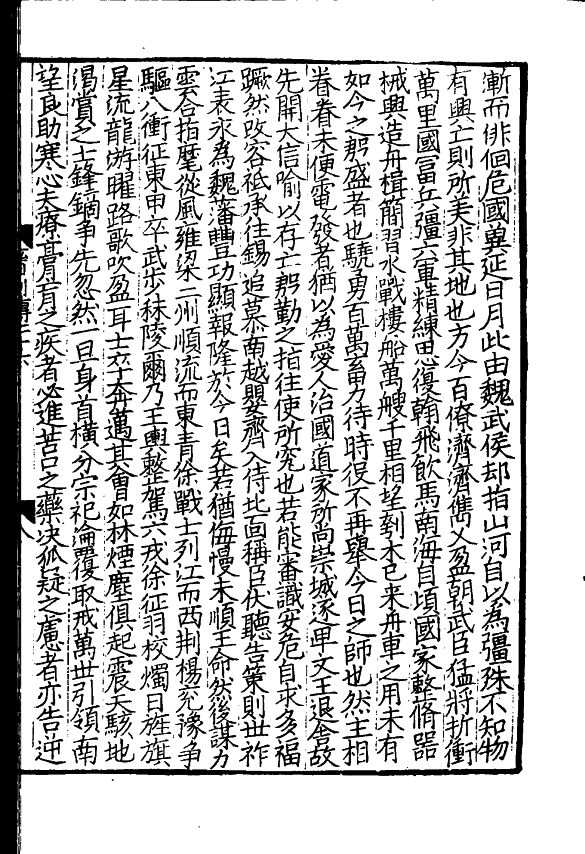 漸而徘徊危國冀延日月此由魏武侯却指山河自以為彊殊不知物
有興亡則所美非其地也方今百僚濟濟儁乂盈朝武臣猛將折衝
萬里國冨兵彊六軍精練思復翰飛飲馬南海自頃國家整脩器
械興造舟楫簡習水戰樓船萬艘千里相望刳木已来舟車之用未有
如今之殷盛者也驍勇百萬畜力待時役不再舉今日之師也然主相
眷眷未便電發者猶以為愛人治國道家所尚崇城遂卑文王退舍故
先開大信喻以存亡殷勤之指往使所究也若能審識安危自求多福
蹶然改容祗承往錫追慕南越嬰齊入侍北面稱臣伏聽告策則世祚
江表永為魏藩豐功顯報隆於今日矣若猶侮慢未順王命然後謀力
雲合指麾從風雍梁二州順流而東青徐戰士列江而西荆楊兗豫爭
驅八衝征東甲卒武步秣陵爾乃王輿整駕六戎徐征羽校燭日旌旗
星流龍游曜路歌吹盈耳士卒奔邁其會如林煙塵俱起震天駭地
渴賞之士鋒鏑爭先忽然一旦身首橫分宗祀淪覆取戒萬世引領南
望良助寒心夫療膏肓之疾者必進苦口之藥決狐疑之慮者亦告逆